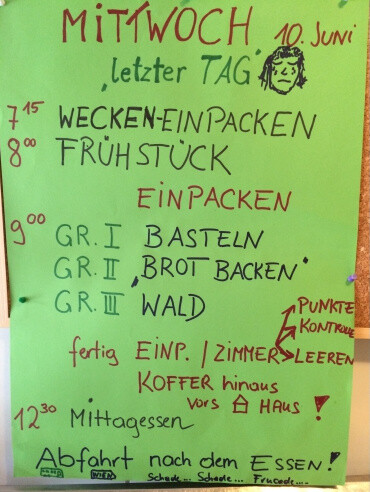 MITTWOCH 10. JUNI
"letzter TAG"
7 15 WECKEN-EINPACKEN
8 00 FRÜHSTÜCK
EINPACKEN
9 00 GR. I BASTELN
GR. II "BROT BACKEN"
GR. III WALD
PUNKTE
KONTROLLE
fertig EINP. / ZIMMER LEEREN
KOFFER hinaus
vors HAUS !
12 30 Mittagessen
Abfahrt nach dem ESSEN!
WIEN Schade... Schade...